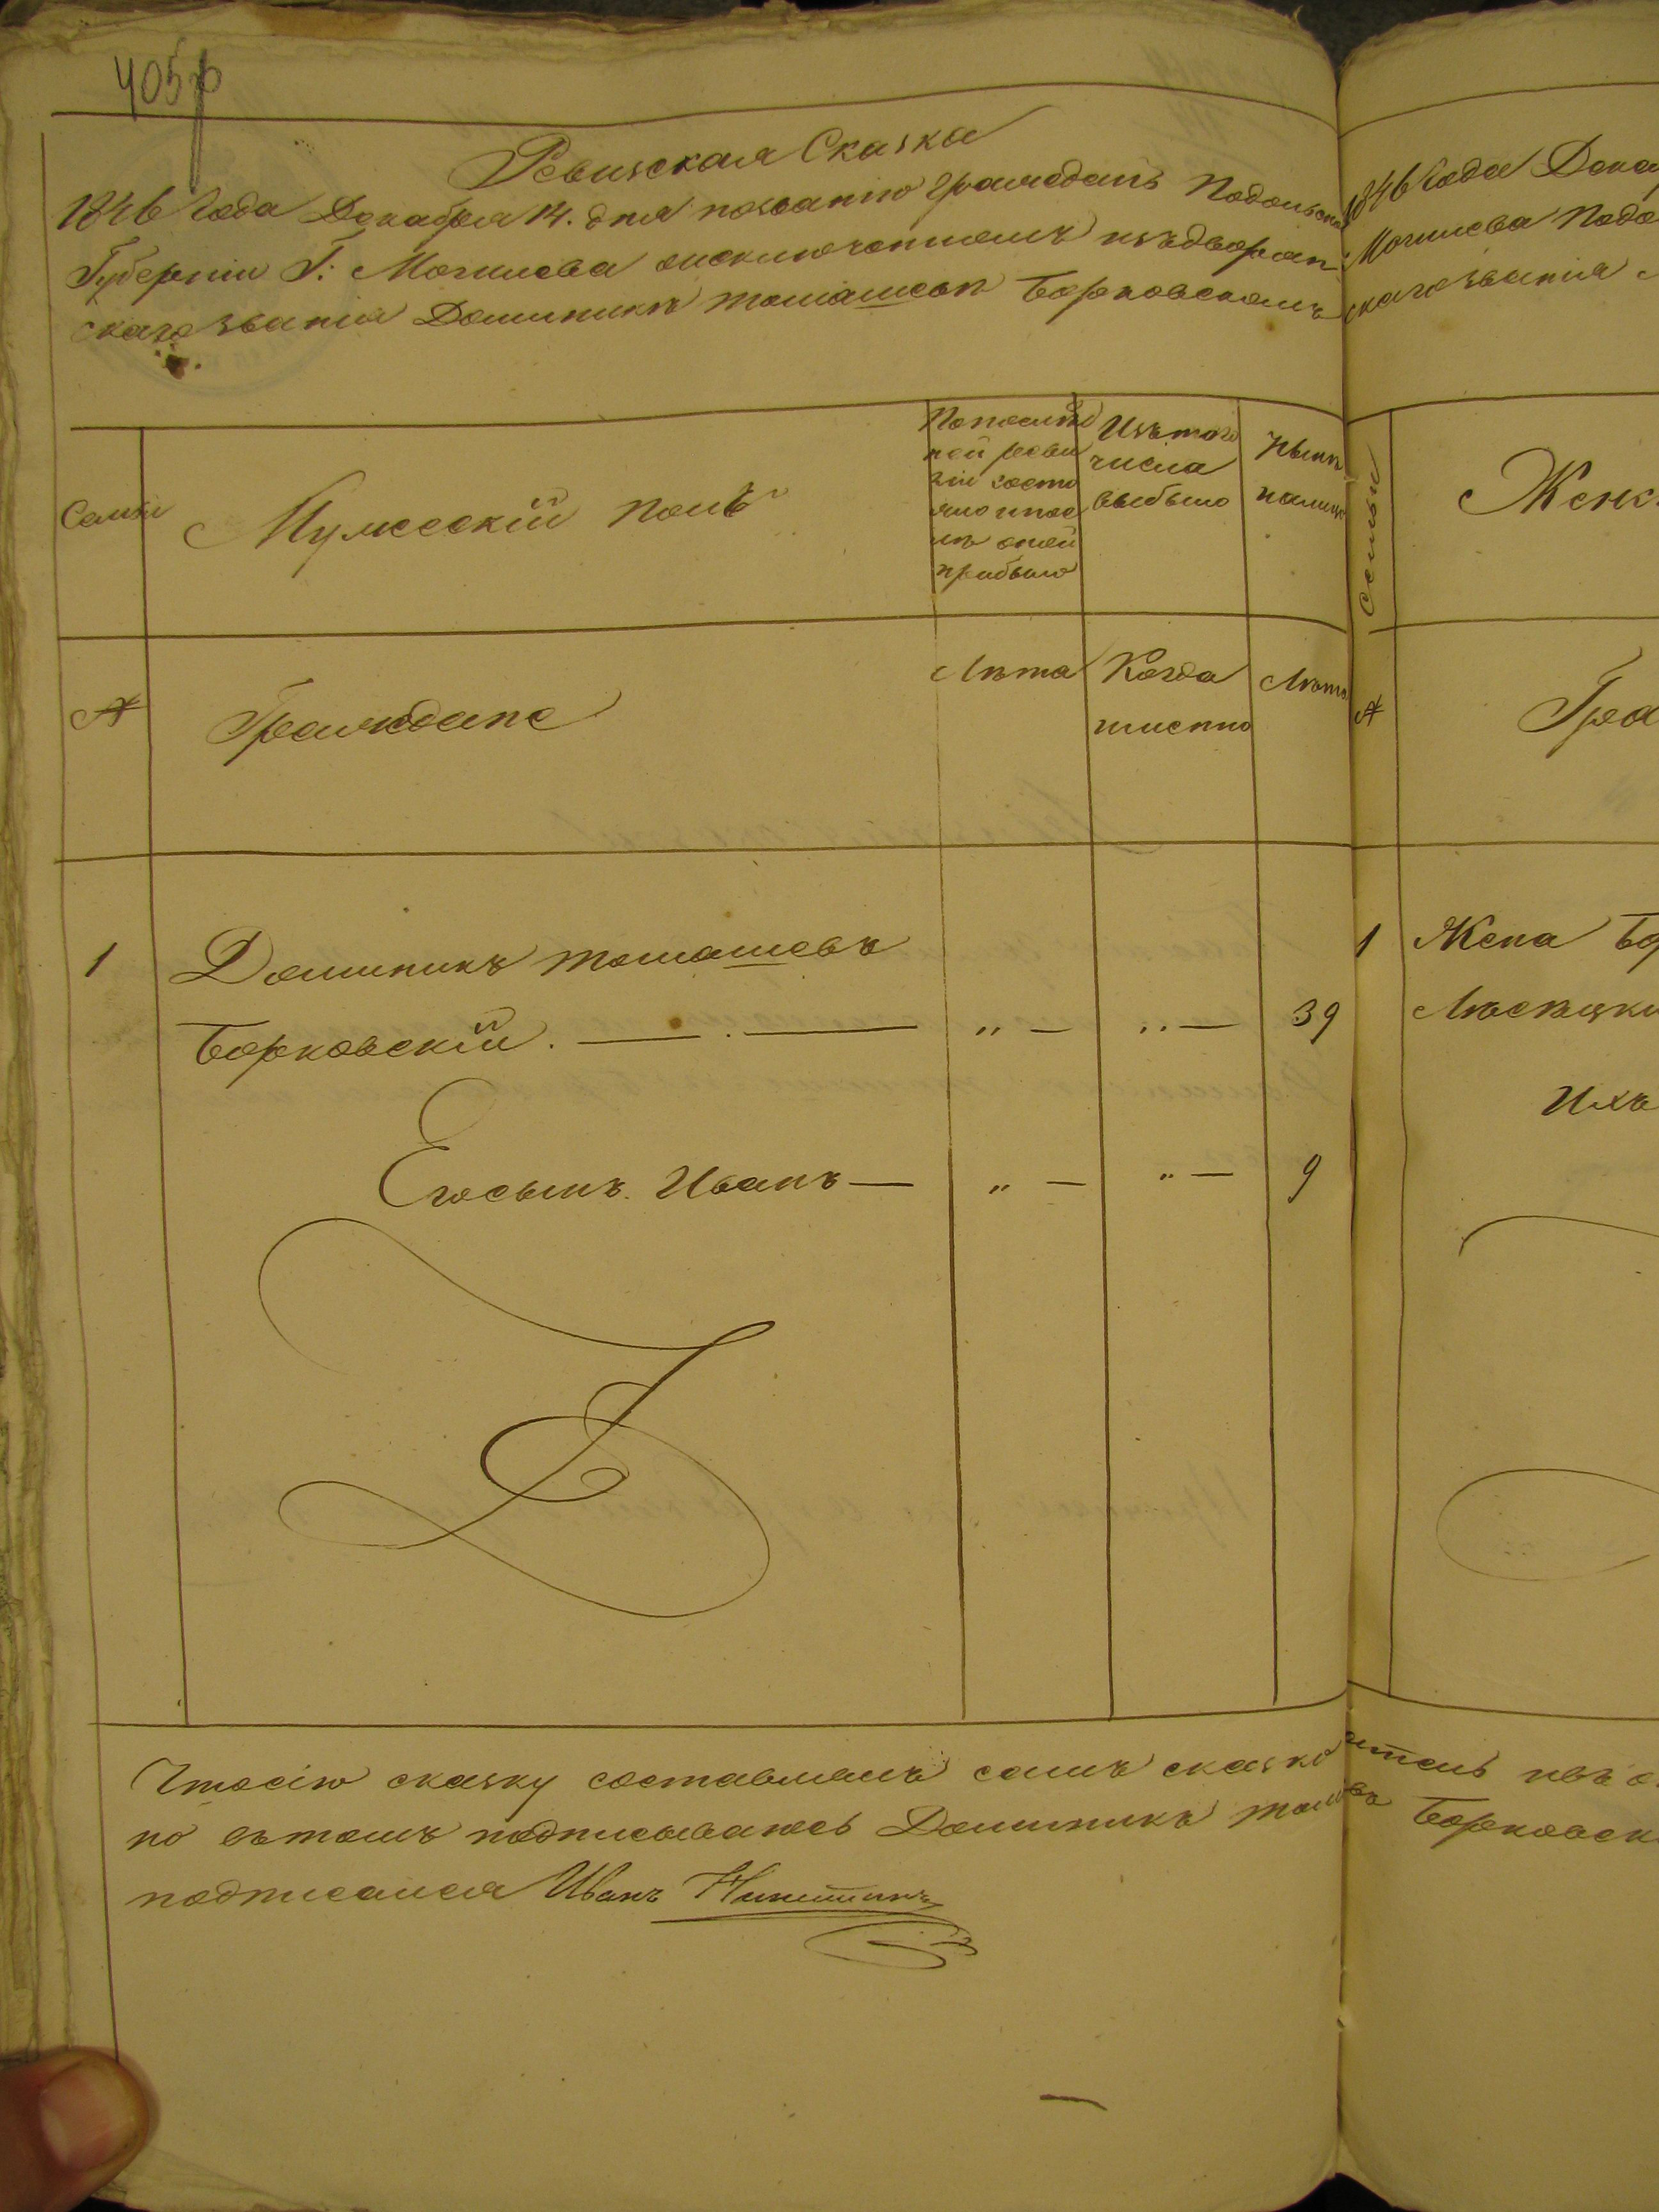 405
Ревизская Сказка
1846 года Декабря 14. дня позванию Гражданъ Подольской
Губерніи Г: Могилева оисключенномъ изъдворян
скаго званія Доминикѣ томашевѣ Борковскомъ
Семьи
Мужескій полъ
Попослѣд
ней реви
зіи состо
яло ипос
лѣ оной
прибыло
Изътого
числа
выбыло
Нынѣ
налицо
№
Граждане
Лѣта
Когда
имѣнно
Лѣта
1
Доминикъ томашевъ
Борковскій. — . — „ — „ — 39
Егосынъ. Иванъ — „ — „ — 9
Чтосію сказку составлялъ самъ сказко
по вътомъ подписываюсь Доминикъ
подписался Иванъ Никитинъ
1846 года Дека
Могилева Подо
скаго званія
Семьи
Женс
№
Гра
1 Жена Бо
Ихъ
итель
Борковск